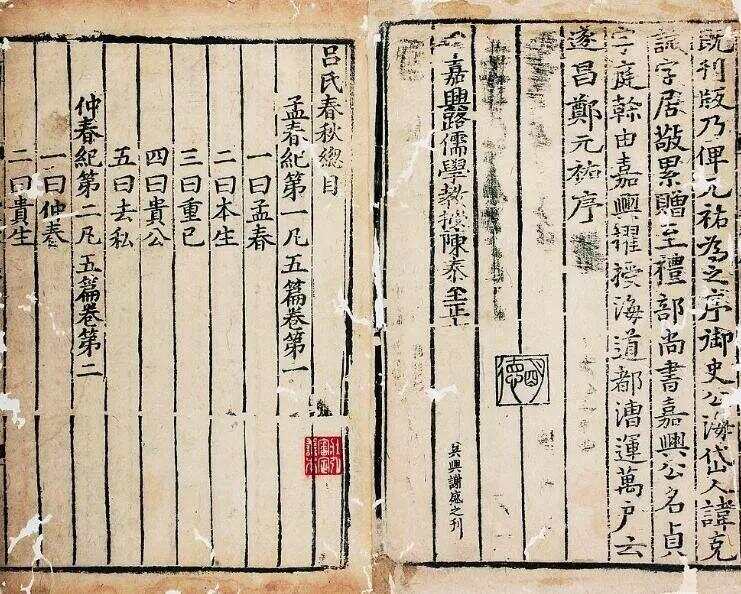 既刊版乃俾元祐為之序御史公海岱人諱克
誠字居敬累贈至禮部尚書嘉興公名貞
字庭幹由嘉興耀授海道都漕運萬戶云
遂昌鄭元祐序
嘉興路儒學教授陳泰至正
吳興謝盛之刊
呂氏春秋總目
孟春紀第一凡五篇卷第一
一曰孟春
二曰本生
三曰重己
四曰貴公
五曰去私
仲春紀第二凡五篇卷第二
一曰仲春
二曰貴生